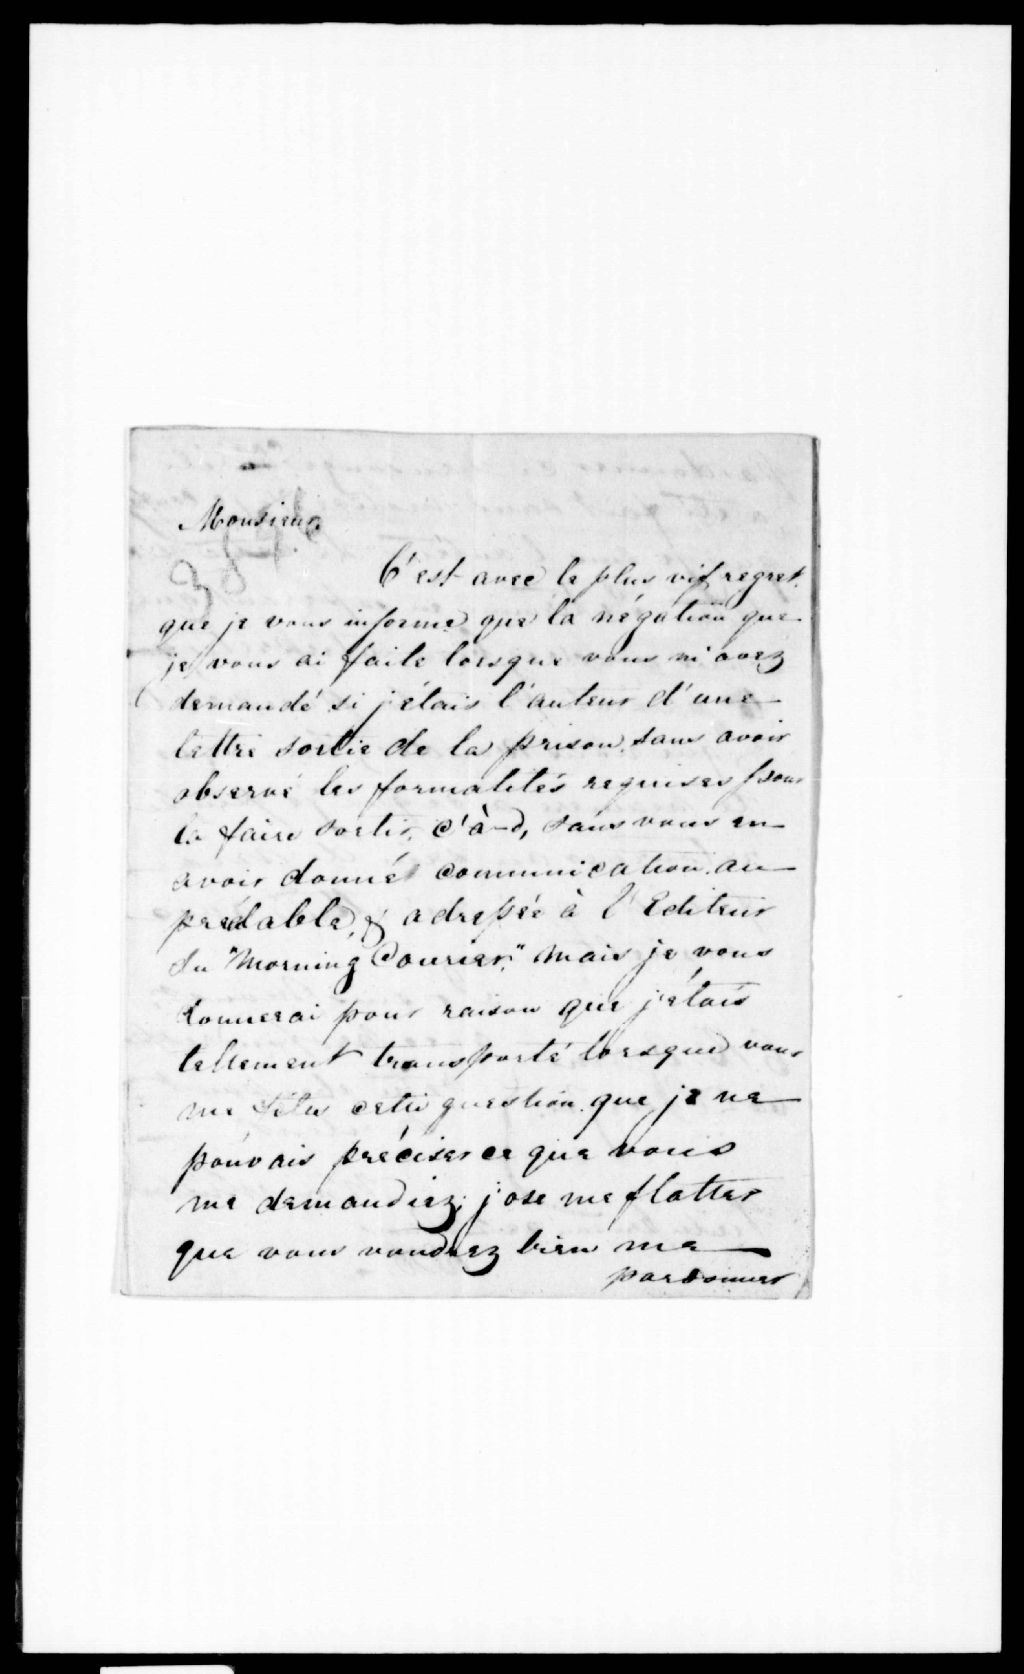 Monsieur
C'est avec le plus vif regret.
que je vous informe que la négation que
je vous ai faite lorsque vous m'avez
demandé si j'étais l'auteur d'une
lettre sortie de la prison, sans avoir
observé les formalités requises pour
la faire sortir, c'à-d, sans vous en
avoir donné communication au
préalable, & adressée à l'Editeur
du "Morning Courier," mais je vous
donnerai pour raison que j'étais
tellement transporté lorsque vous
me fîtes cette question que je ne
pouvais préciser ce que vous
me demandiez; j'ose me flatter
que vous voudrez bien me
pardonner